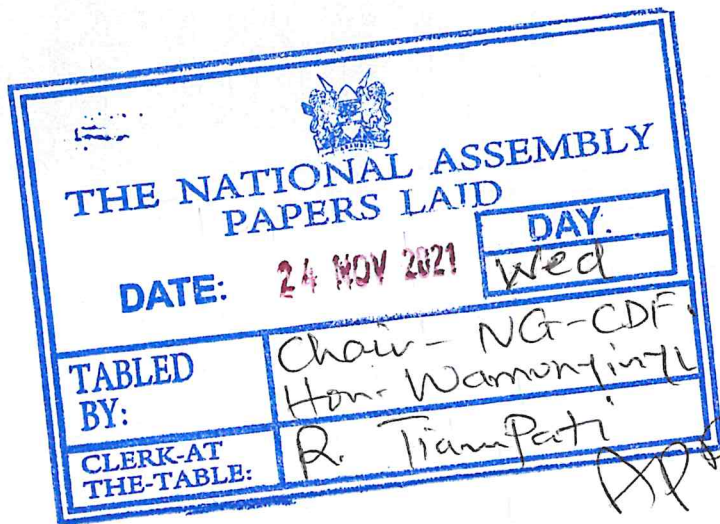 THE NATIONAL ASSEMBLY
PAPERS LAID
DATE: 24 NOV 2021
DAY:
Wed
TABLED
BY:
Chair - NG-CDF.
Hon. Wamunyinyi
CLERK-AT
THE-TABLE:
R. Tiampati